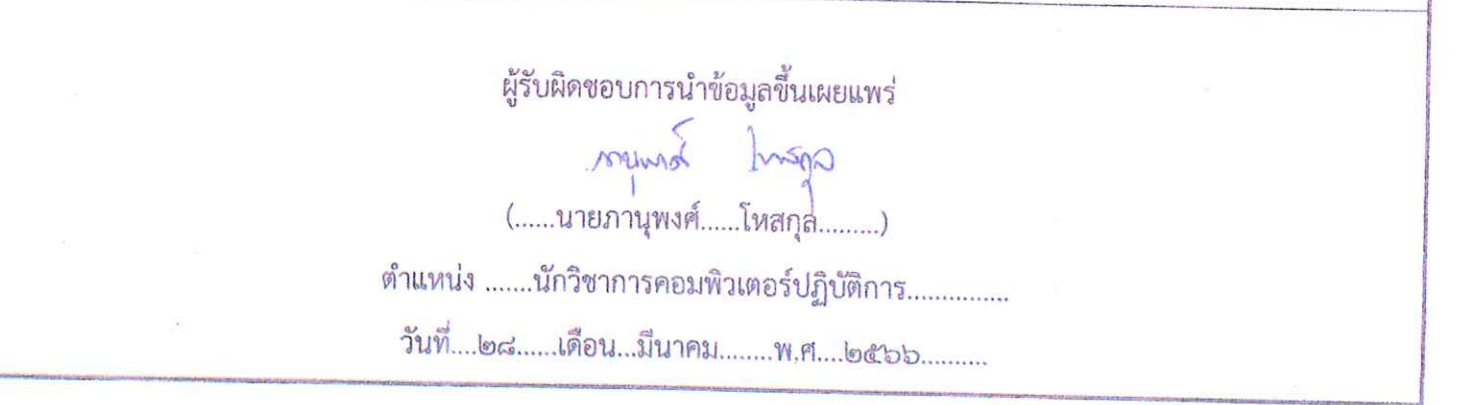 ผู้รับผิดชอบการนำข้อมูลขึ้นเผยแพร่
ภานุพงศ์ โหสกุล
(......นายภานุพงศ์......โหสกุล.........)
ตำแหน่ง .......นักวิชาการคอมพิวเตอร์ปฏิบัติการ...............
วันที่....๒๘......เดือน...มีนาคม........พ.ศ....๒๕๖๖..........